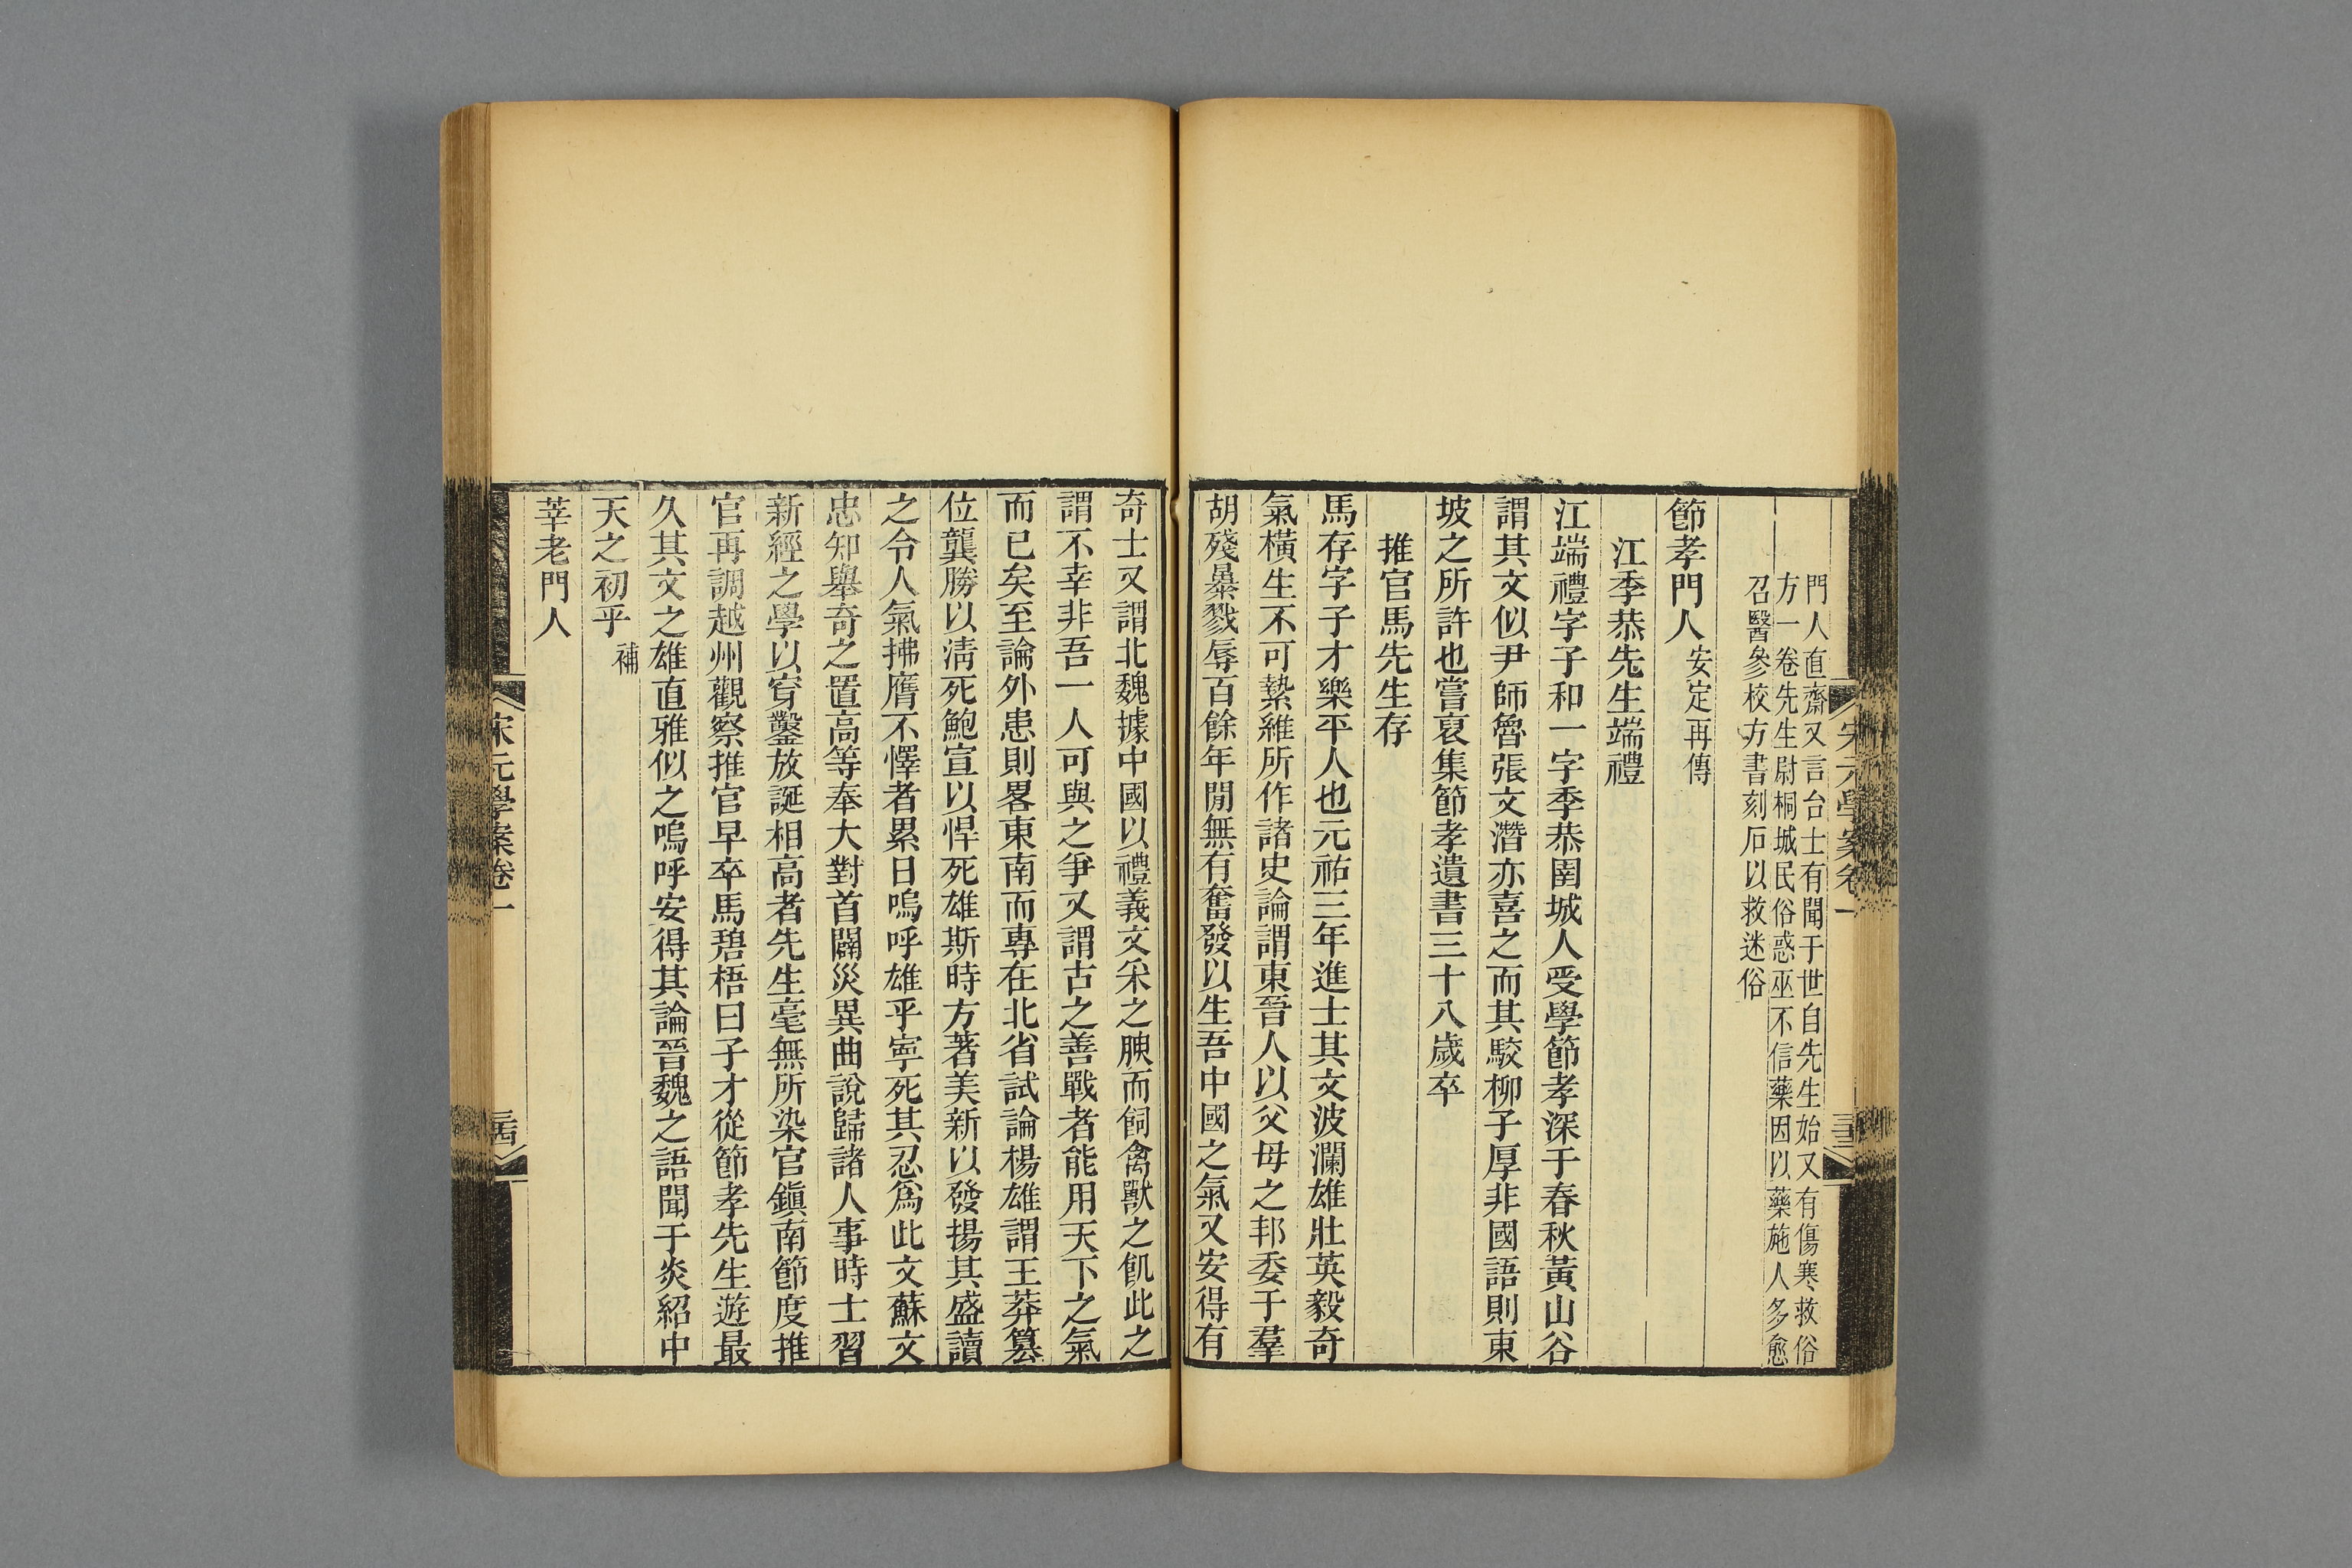 宋元學案卷一
三三
門人直齋又言台士有聞于世自先生始又有傷寒救俗
方一卷先生尉桐城民俗惑巫不信藥因以藥施人多愈
召醫參校方書刻石以救迷俗
節孝門人安定再傳
江季恭先生端禮
江端禮字子和一字季恭圉城人受學節孝深于春秋黃山谷
謂其文似尹師魯張文潛亦喜之而其駮柳子厚非國語則東
坡之所許也嘗裒集節孝遺書三十八歲卒
推官馬先生存
馬存字子才樂平人也元祐三年進士其文波瀾雄壯英毅奇
氣橫生不可縶維所作諸史論謂東晉人以父母之邦委于羣
胡殘暴戮辱百餘年閒無有奮發以生吾中國之氣又安得有
奇士又謂北魏據中國以禮義文采之腴而飼禽獸之飢此之
謂不幸非吾一人可與之爭又謂古之善戰者能用天下之氣
而已矣至論外患則畧東南而專在北省試論楊雄謂王莽篡
位龔勝以清死鮑宣以悍死雄斯時方著美新以發揚其盛讀
之令人氣拂膺不懌者累日嗚呼雄乎寧死其忍爲此文蘇文
忠知舉奇之置高等奉大對首闢災異曲說歸諸人事時士習
新經之學以穿鑿放誕相高者先生毫無所染官鎭南節度推
官再調越州觀察推官早卒馬碧梧曰子才從節孝先生遊最
久其文之雄直雅似之嗚呼安得其論晉魏之語聞于炎紹中
天之初乎補
莘老門人
宋元學案卷一
三四